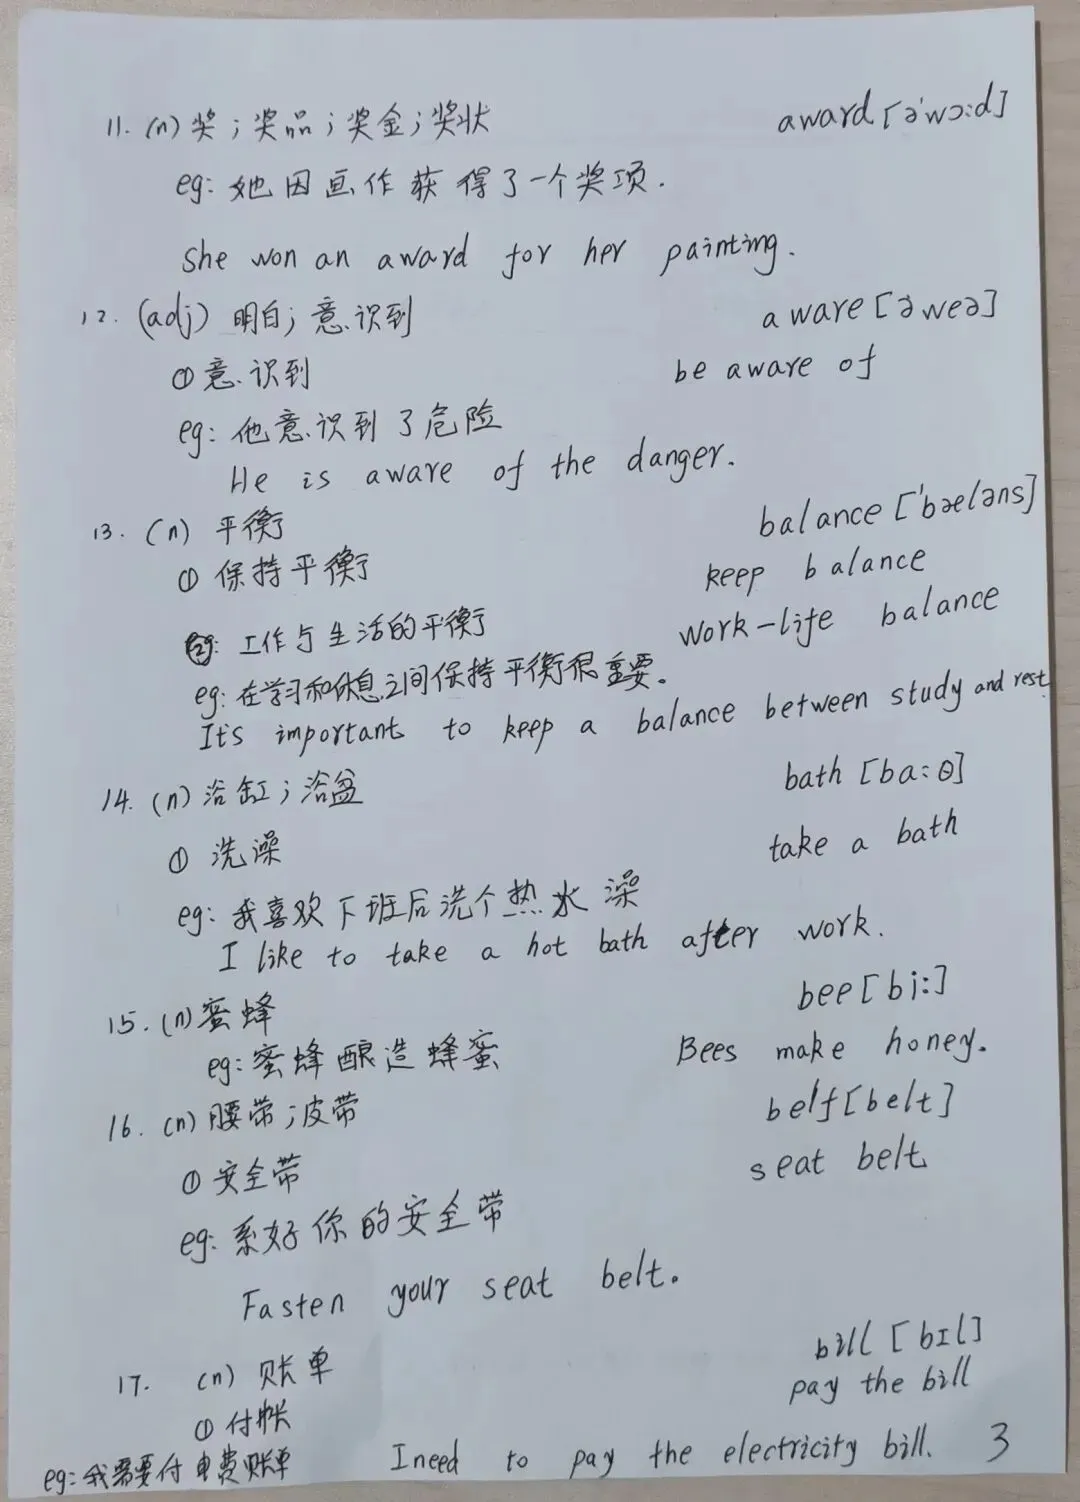 11. (n) 奖；奖品；奖金；奖状 award [ə'wɔ:d]
eg: 她因画作获得了一个奖项.
She won an award for her painting.
12. (adj) 明白；意识到 aware [ə'weə]
① 意识到 be aware of
eg: 他意识到了危险
He is aware of the danger.
13. (n) 平衡 balance ['bæləns]
① 保持平衡 keep balance
②: 工作与生活的平衡 work-life balance
eg: 在学习和休息之间保持平衡很重要。
It's important to keep a balance between study and rest.
14. (n) 浴缸；浴盆 bath [ba:θ]
① 洗澡 take a bath
eg: 我喜欢下班后洗个热水澡
I like to take a hot bath after work.
15. (n) 蜜蜂 bee [bi:]
eg: 蜜蜂酿造蜂蜜 Bees make honey.
16. (n) 腰带；皮带 belt [belt]
① 安全带 seat belt
eg: 系好你的安全带
Fasten your seat belt.
17. (n) 账单 bill [bɪl]
① 付账 pay the bill
eg: 我需要付电费账单 I need to pay the electricity bill. 3